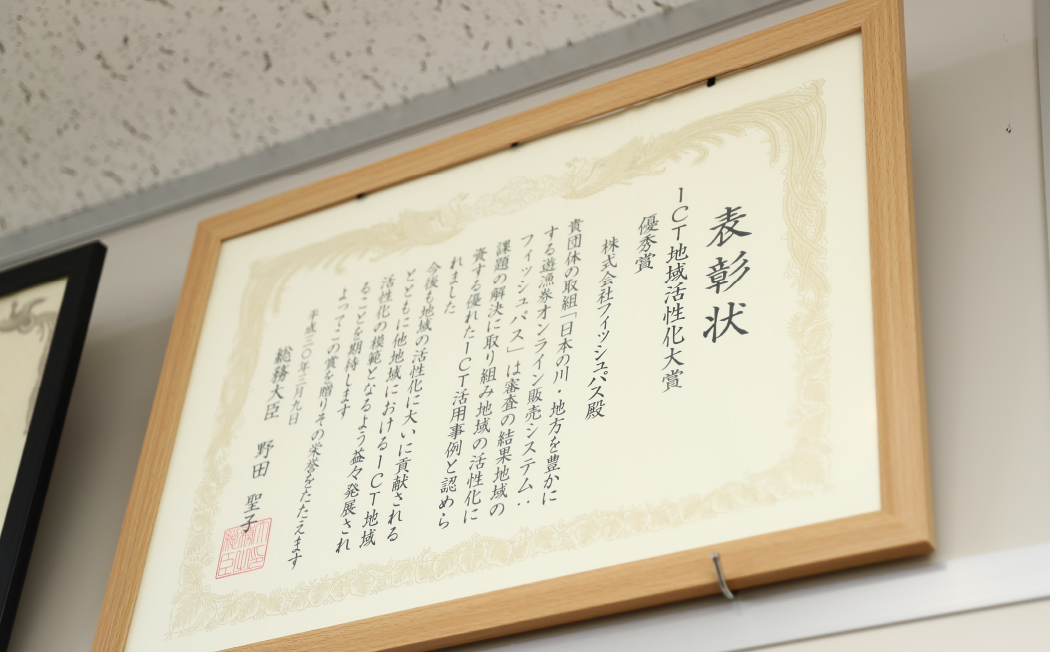 表彰状
ICT地域活性化大賞
優秀賞
株式会社フィッシュパス殿
貴団体の取組「日本の川・地方を豊かに
する遊漁券オンライン販売システム：
フィッシュパス」は審査の結果地域の
課題の解決に取り組み地域の活性化に
資する優れたICT活用事例と認めら
れました
今後も地域の活性化に大いに貢献される
とともに他地域におけるICT地域
活性化の模範となるよう益々発展され
ることを期待します
よってこの賞を贈りその栄誉をたたえます
平成三〇年三月九日
総務大臣 野田 聖子